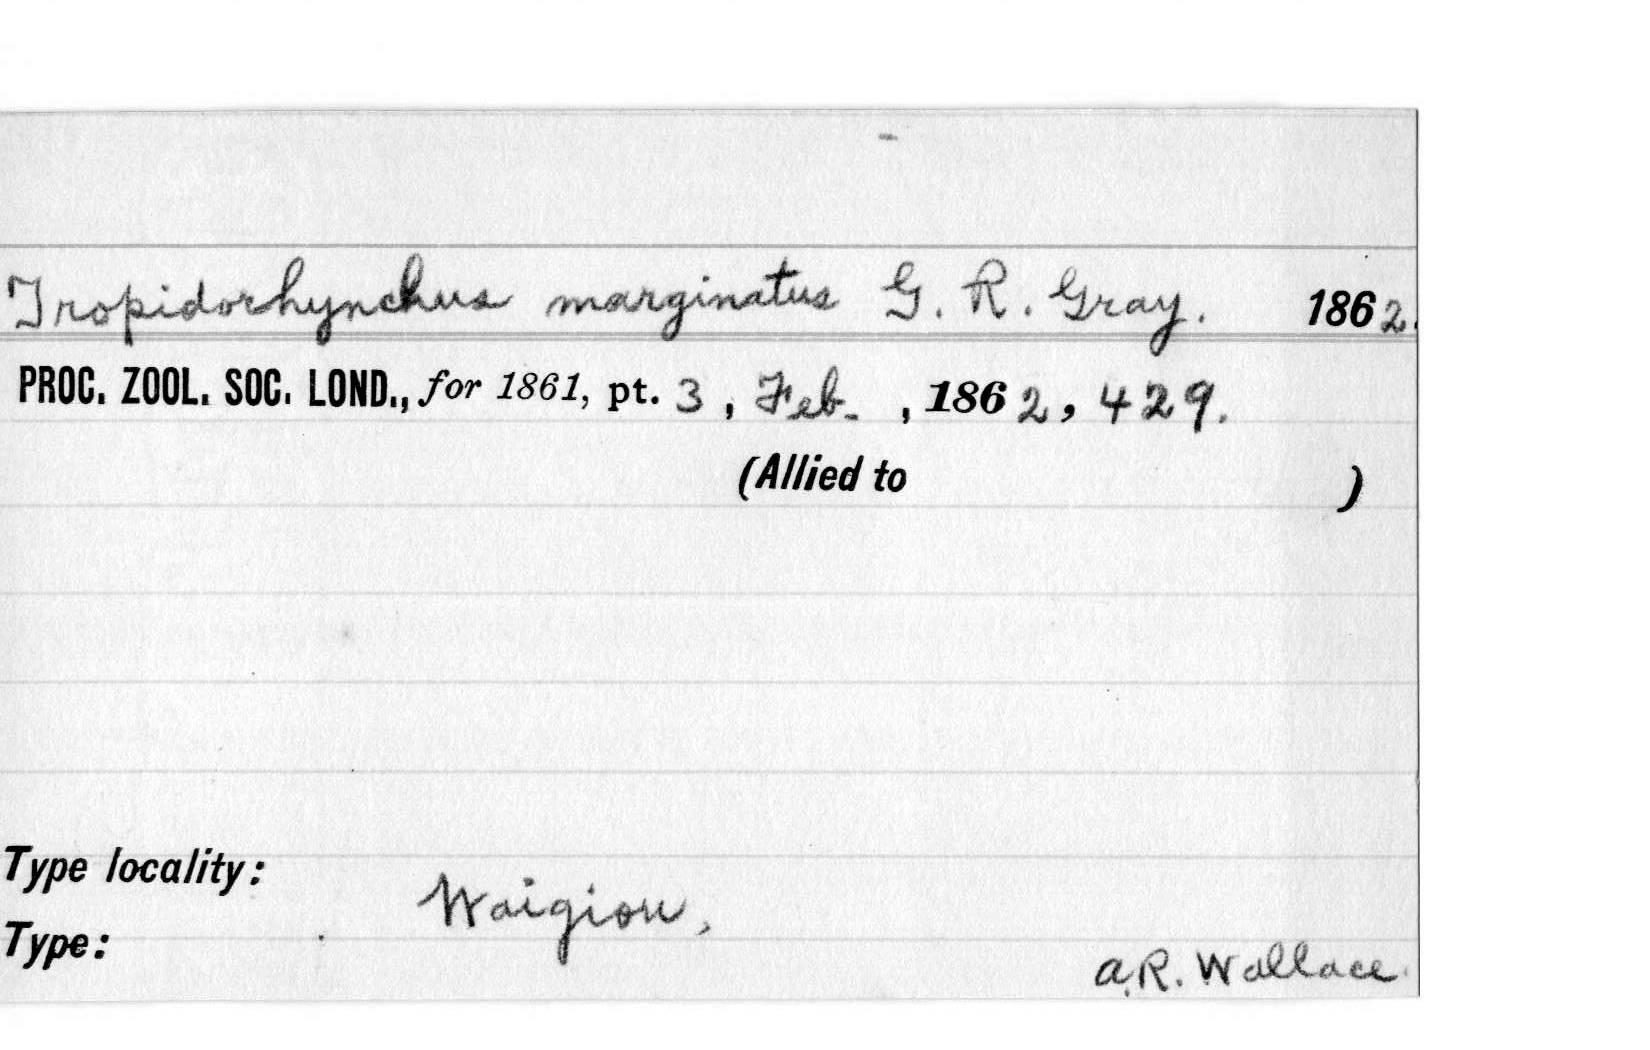 Tropidorhynchus marginatus G. R. Gray. 1862.
PROC. ZOOL. SOC. LOND., for 1861, pt. 3, Feb. , 1862, 429.
(Allied to )
Type locality:
Waigiou,
Type:
A.R. Wallace.